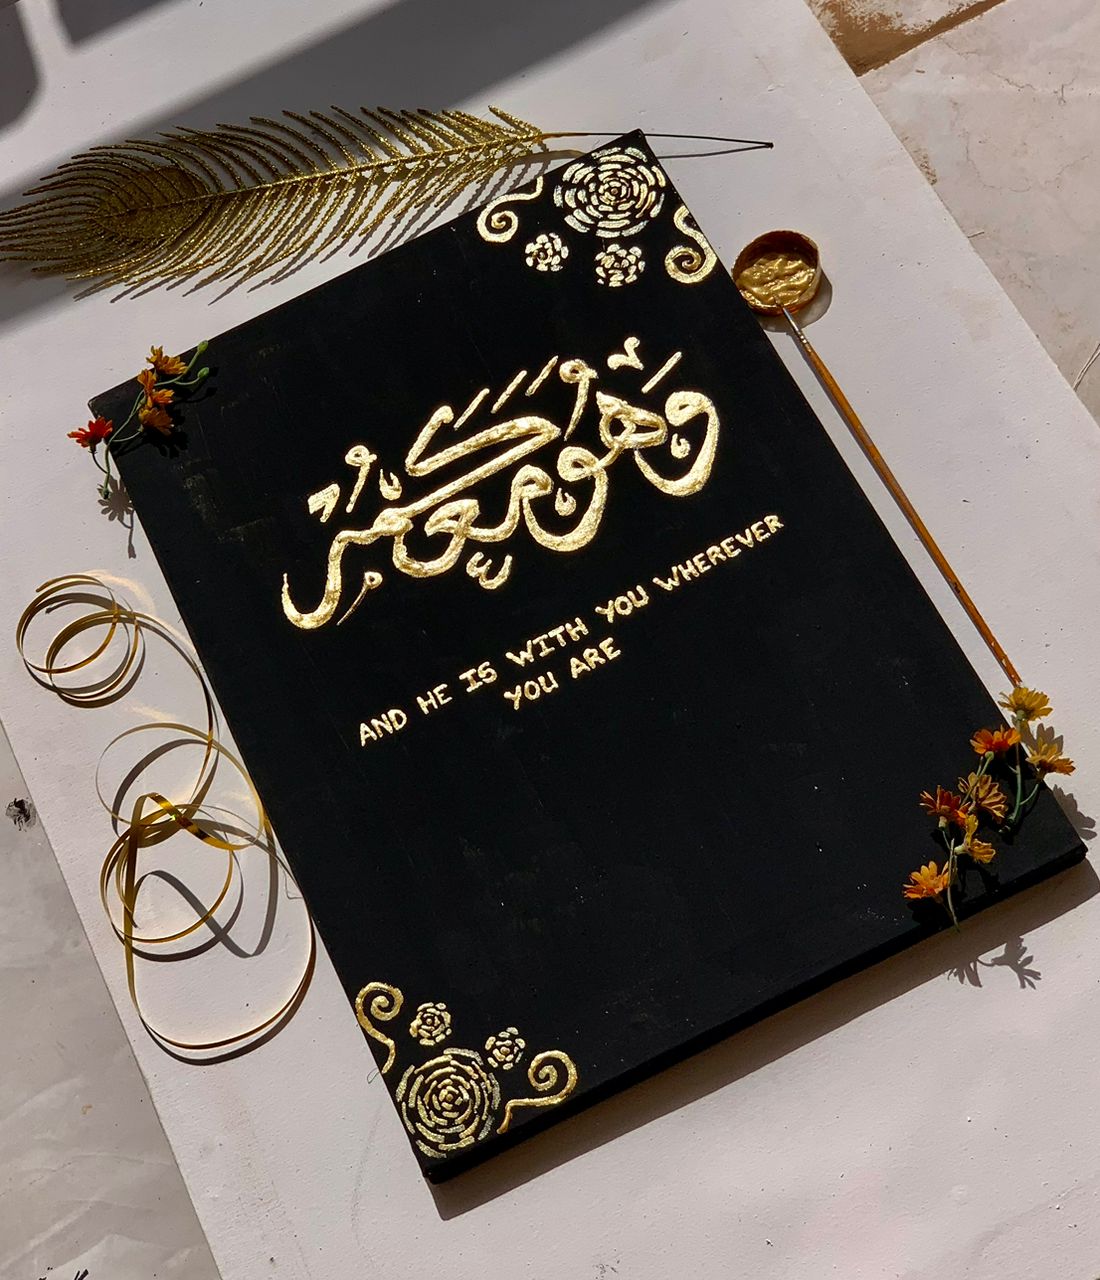 وَهُوَ مَعَكُمْ
AND HE IS WITH YOU WHEREVER
YOU ARE